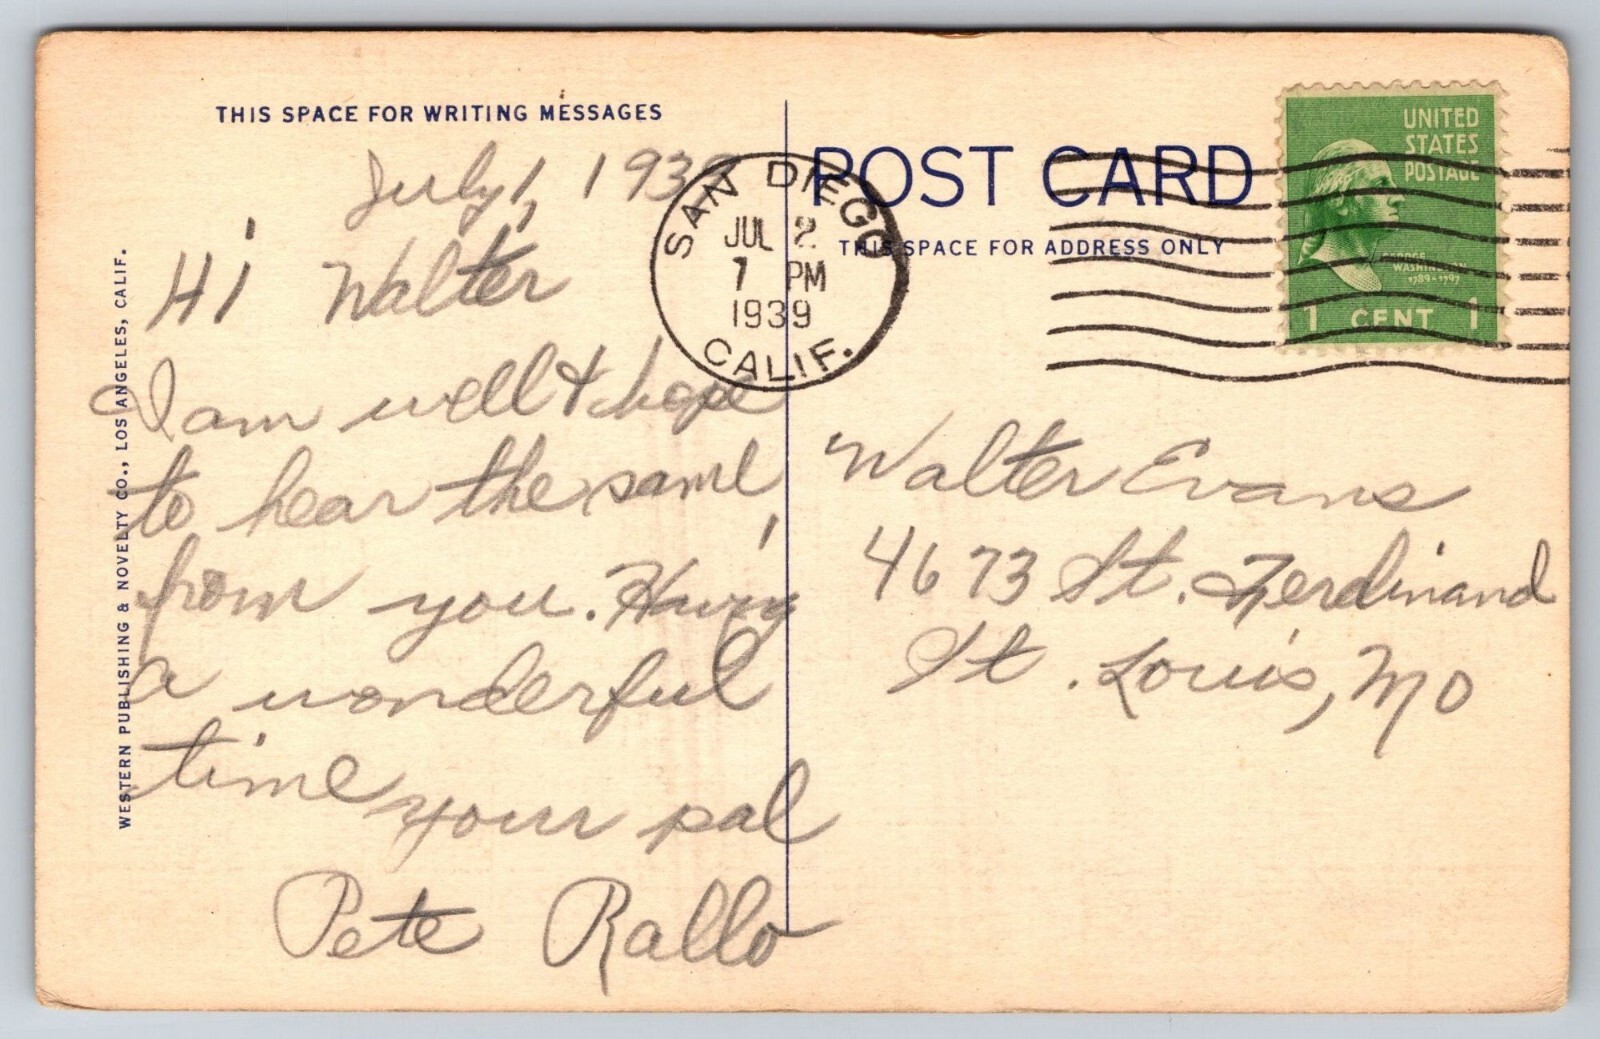 THIS SPACE FOR WRITING MESSAGES
July 1, 1939
Hi Walter
I am well & hope
to hear the same
from you. Having
a wonderful
time
your pal
Pete Rallo
WESTERN PUBLISHING & NOVELTY CO., LOS ANGELES, CALIF.
SAN DIEGO
JUL 2
7 PM
1939
CALIF.
POST CARD
THIS SPACE FOR ADDRESS ONLY
UNITED
STATES
POSTAGE
GEORGE
WASHINGTON
1789-1797
1 CENT 1
Walter Evans
4673 St. Ferdinand
St. Louis, Mo